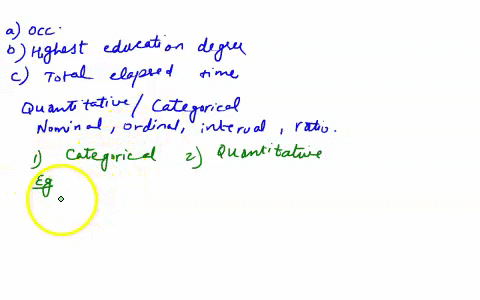 a) Occ.
b) Highest education degree
c) Total elapsed time
Quantitative / Categorical
Nominal, ordinal, interval, ratio.
1) Categorical 2) Quantitative
Eg